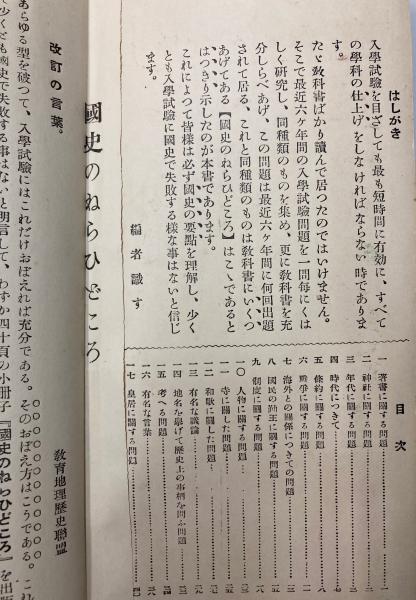 はしがき
入學試驗を目ざしても最も短時間に有効に、すべて
の學科の仕上げをしなければならない時でありま
す。
たゞ敎科書ばかり讀んで居つたのではいけません。
そこで最近六ヶ年間の入學試驗問題を一問每にくは
しく研究し、同種類のものを集め、更に敎科書を充
分しらべあげ、この問題は最近六ヶ年間に何回出題
されて居る、これと同種類のものは敎科書にいくつ
あげてある【國史のねらひどころ】はこゝであると
はつきり示したのが本書であります。
これによつて皆樣は必ず國史の要點を理解し、少く
とも入學試驗に國史で失敗する樣な事はないと信じ
ます。
編者識す
目次
一 著書に關する問題
二 神社に關する問題
三 年代に關する問題
四 時代について
五 條約に關する問題
六 戰爭に關する問題
七 海外との關係についての問題
八 國民の勤王に關する問題
九 制度に關する問題
一〇 人物に關する問題
一一 寺に關した問題
一二 和歌に關した問題
一三 有名な議論
一四 地名を擧げて歷史上の事柄を問ふ問題
一五 考へる問題
一六 有名な言葉
一七 皇居に關する問題
國史のねらひどころ
敎育地理歷史聯盟
改訂の言葉。
あらゆる型を破つて、入學試驗にはこれだけおぼえれば充分である。そのおぼえ方はこうである。これ
で少くとも國史で失敗する事はないと明言して、わずか四十頁の小冊子『國史のねらひどころ』を出版